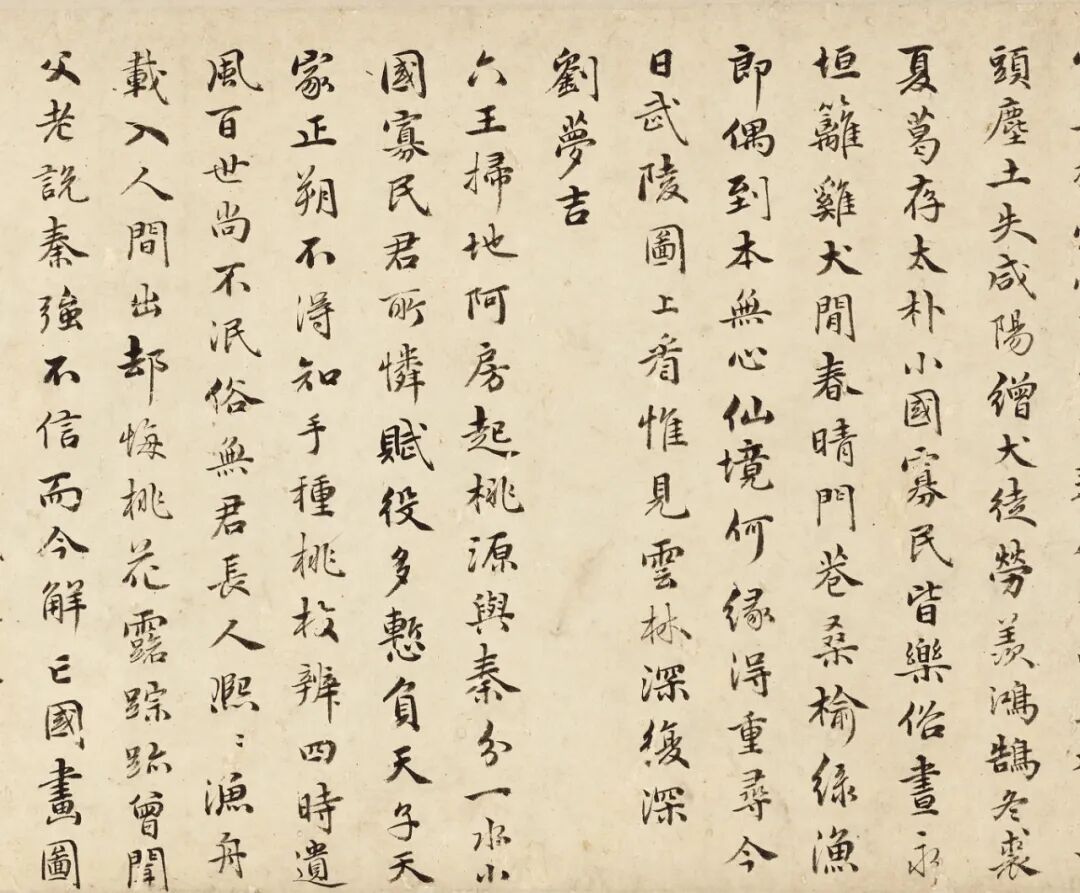 頭塵土失咸陽繒犬徒勞羨鴻鵠冬裘
夏葛存太朴小國寡民皆樂俗晝永
垣籬雞犬閒春晴門巷桑榆綠漁
郎偶到本無心仙境何緣得重尋今
日武陵圖上看惟見雲林深復深
劉夢吉
六王掃地阿房起桃源與秦分一水小
國寡民君所憐賦役多慙負天子天
家正朔不得知手種桃枝辨四時遺
風百世尚不泯俗無君長人熙〻漁舟
載入人間出却悔桃花露踪跡曾聞
父老說秦強不信而今解亡國畫圖